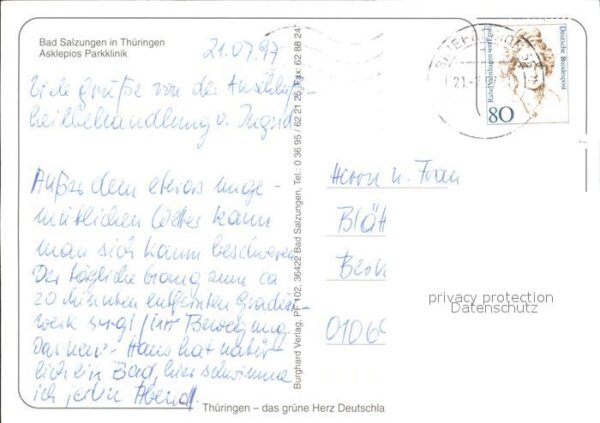 Bad Salzungen in Thüringen
Asklepios Parkklinik
21.07.97
Viele Grüße von der Anschluß-
heilbehandlung v. Ingrid
Außer dem etwas unge-
mütlichen Wetter kann
man sich kaum beschweren
Der tägliche Gang zum ca
20 Minuten entfernten Gradier-
werk sorgt für Bewegung.
Das neue Haus hat natür-
lich ein Bad, hier schwimme
ich jeden Abend.
Burghard Verlag, PF 102, 36422 Bad Salzungen, Tel.: 0 36 95 / 62 21 25, Fax: 62 88 24
Deutsche Bundespost
Rahel Varnhagen von Ense
80
21.
Herrn u. Frau
Blät
Berl
0106
privacy protection
Datenschutz
Thüringen – das grüne Herz Deutschla